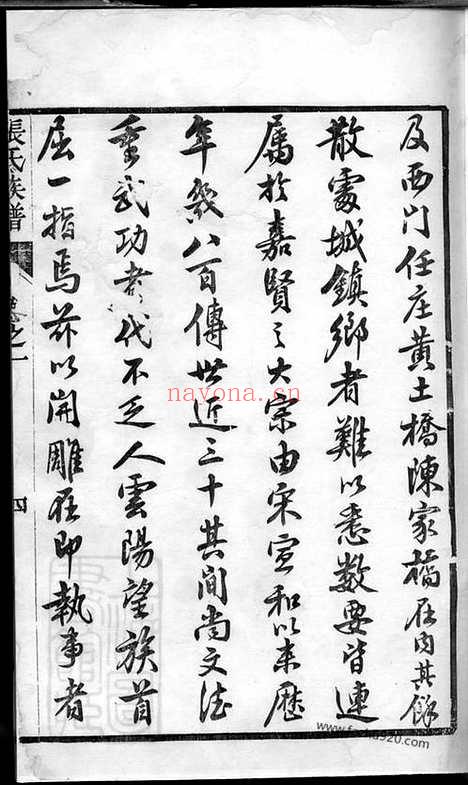 及西门任庄黄土橋陳家橋在内其餘
散處城鎮鄉者難以悉數要皆連
屬於嘉賢之大宗由宋宣和以来歷
年幾八百傳世近三十其间尚文法
重武功者代不乏人雲陽望族首
屈一指焉茲以開雕在即執事者
張氏族譜
卷之一
四
nayona.cn